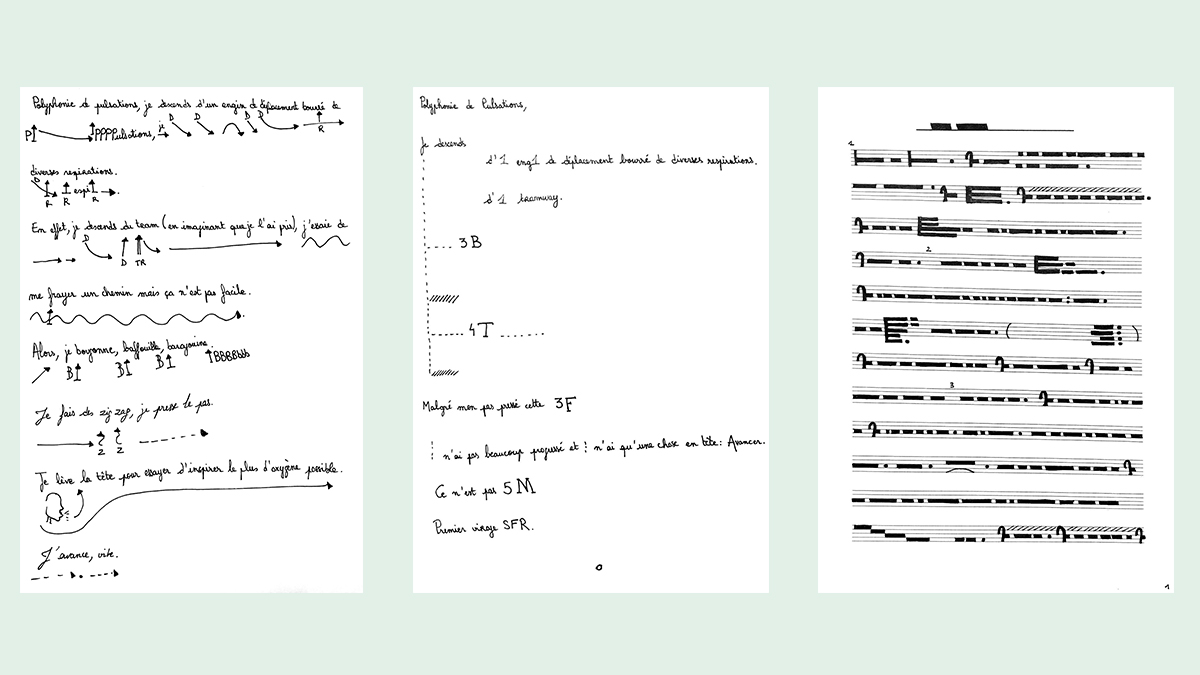 Polyphonie de pulsations, je descends d'un engin de déplacement bourré de
P PPPPulsations, je D D D D R
diverses respirations.
D R R espi R .
En effet, je descends du tram (en imaginant que je l'ai pris), j'essaie de
D D TR
me frayer un chemin mais ça n'est pas facile.
Alors, je bouzonne, baffouille, baragouine.
B B B BBBBbbb
Je fais des zig zag, je presse le pas.
2 2
Je lève la tête pour essayer d'inspirer le plus d'oxygène possible.
J'avance, vite.
Polyphonie de Pulsations,
Je descends
d'1 eng1 de déplacement bourré de diverses respirations.
d'1 tramway.
3B
4T
Malgré mon pas pressé cette 3F
n'ai pas beaucoup progressé et n'ai qu'une chose en tête : Avancer.
Ce n'est pas 5M
Premier virage SFR.
0
1
2
3
1